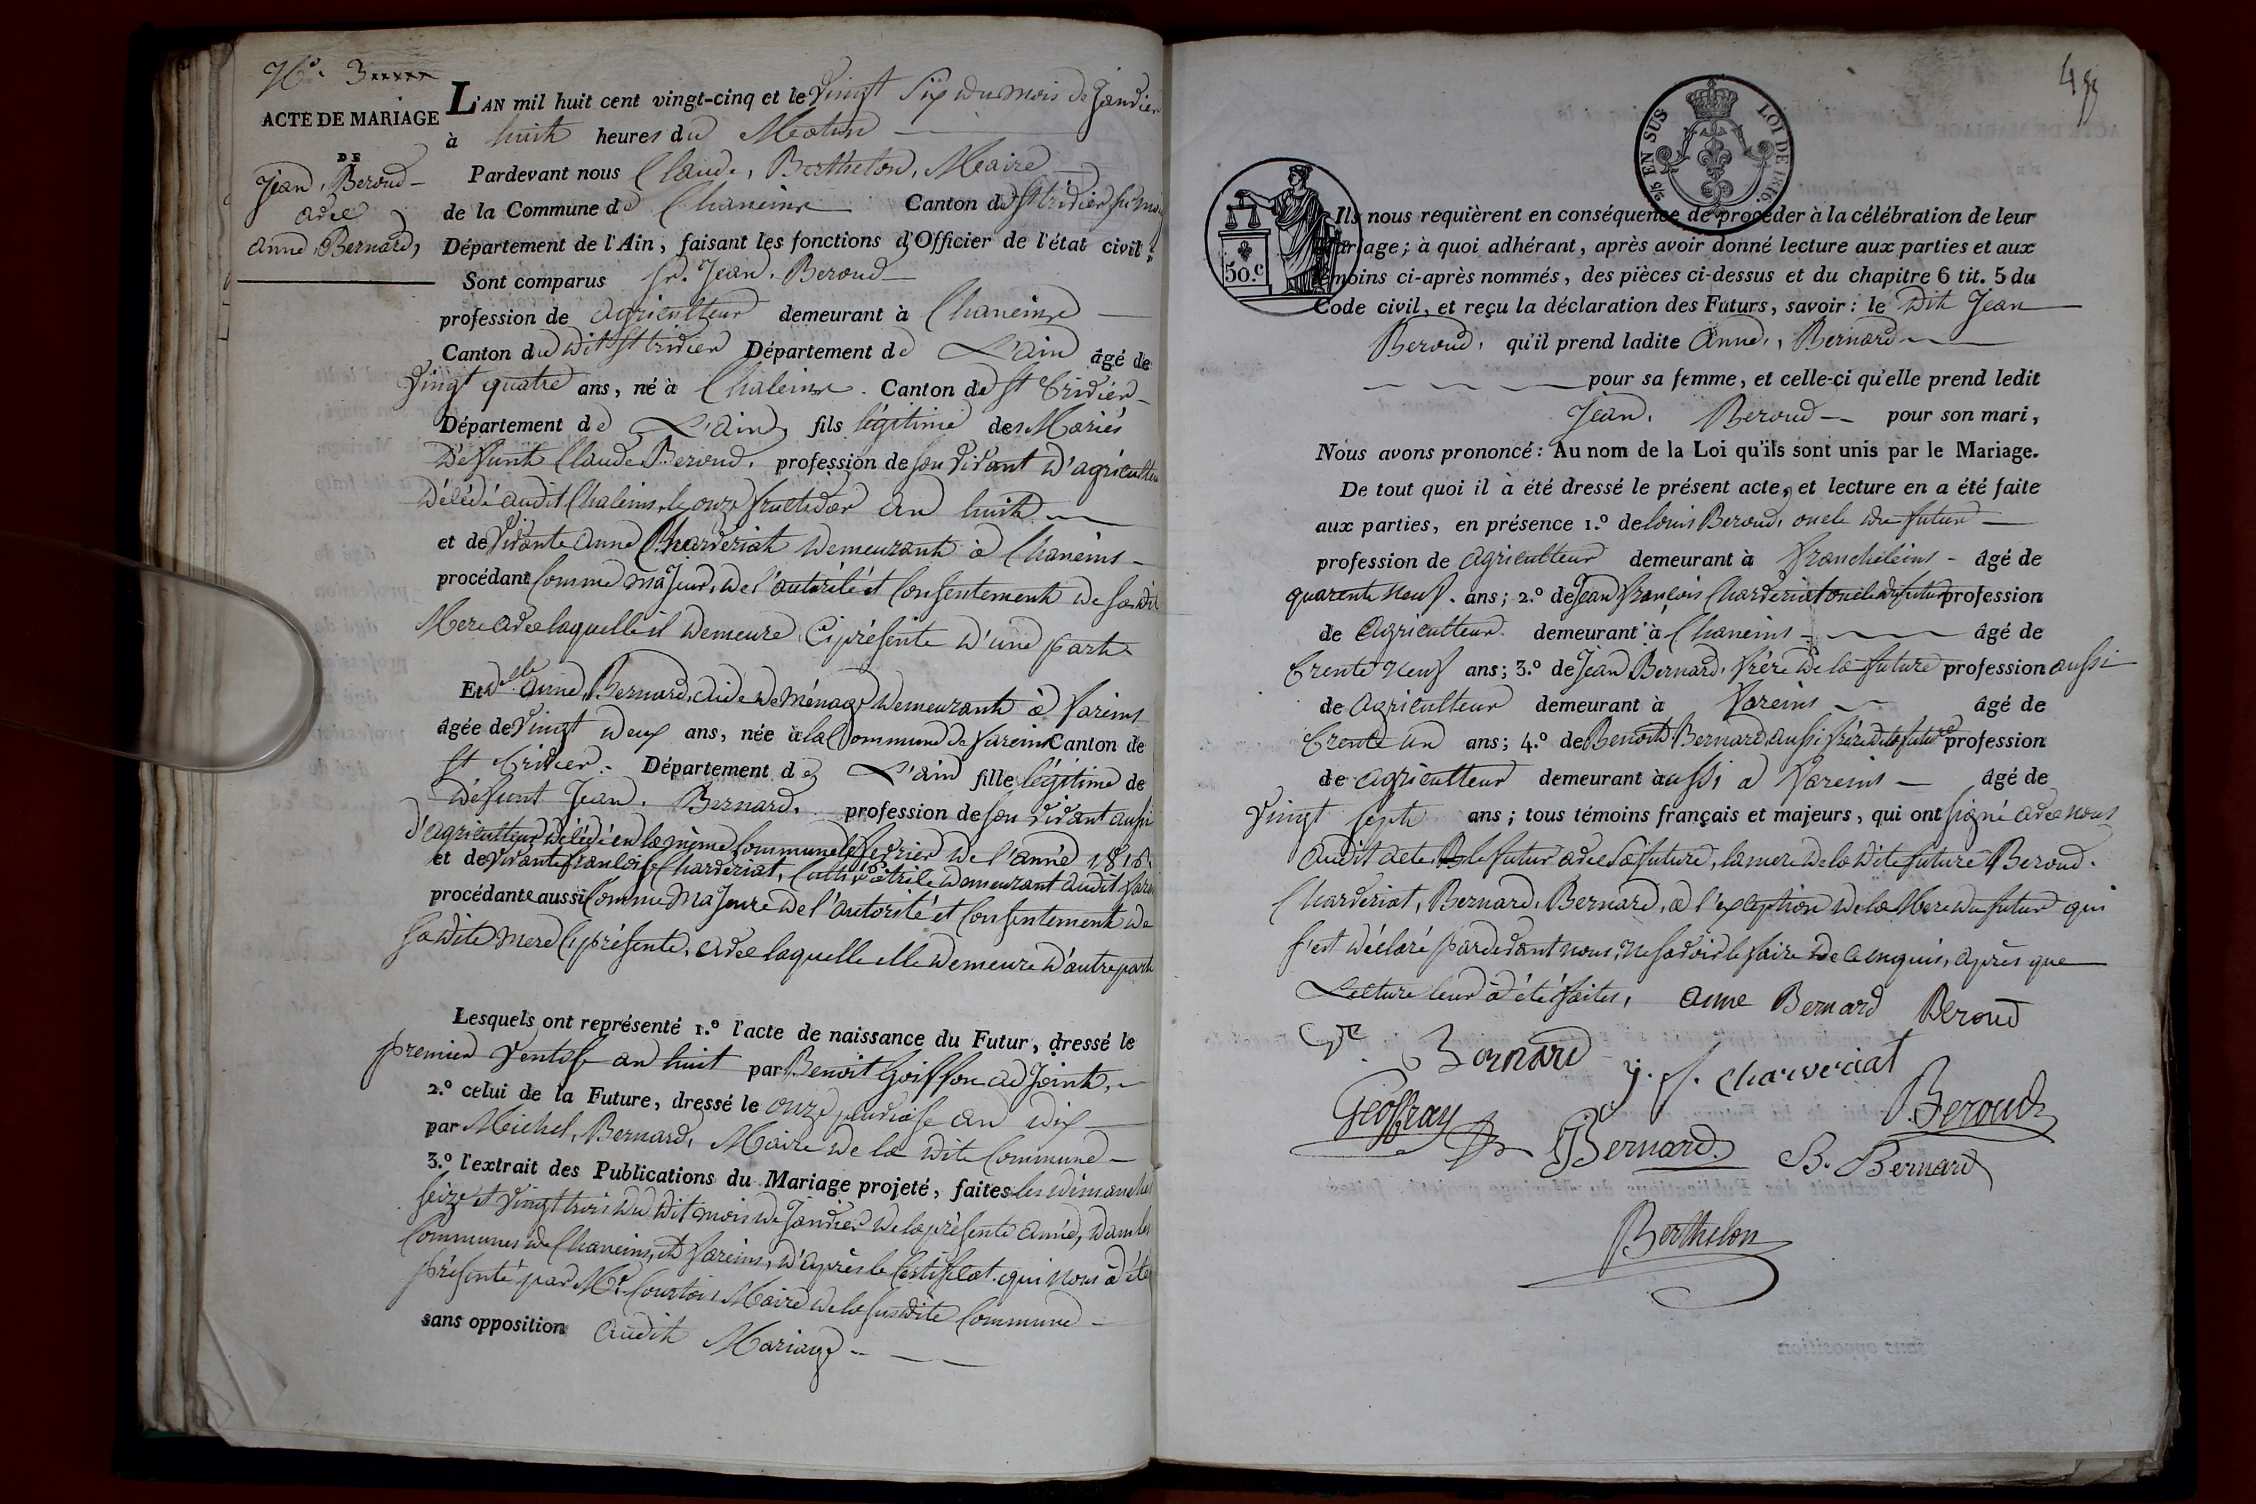 N.º 3
ACTE DE MARIAGE
DE
Jean, Beroud
avec
Anne Bernard,
L'AN mil huit cent vingt-cinq et le Vingt Six du mois de Janvier
à huit heures du Matin
Pardevant nous Claude, Berthelon, Maire
de la Commune de Chaneins Canton de St trivier sur moig
Département de l'Ain, faisant les fonctions d'Officier de l'état civil;
Sont comparus Sr. Jean. Beroud
profession de agriculteur demeurant à Chaneins
Canton du dit St trivier Département de L'ain âgé de
Vingt quatre ans, né à Chaleins. Canton de St Trivier
Département de L'ain fils légitime des Mariés
Défunt Claude Beroud. profession de son vivant d'agriculteur
décédé audit Chaleins, le onze fructidor an huit
et de Vivante Anne Charveriat demeurant à Chaneins
procédant Comme majeur, de l'autorité et Consentement de sa dite
Mere avec laquelle il demeure Ci présente d'une part
Et delle Anne, Bernard, aide de ménage demeurant à Fareins
âgée de Vingt deux ans, née à la Commune de Fareins Canton de
St Trivier. Département de L'ain fille légitime de
Défunt Jean. Bernard. profession de son vivant aussi
d'agriculteur décédé en la même Commune le fevrier de l'année 1816
et de Vivante françoise Charveriat, Cultivatrice demeurant audit Farei
procédante aussi Comme Majeure de l'autorité et Consentement de
sa dite mere Ci présente, avec laquelle elle demeure d'autre part
Lesquels ont représenté 1.º l'acte de naissance du Futur, dressé le
premier Ventose an huit par Benoit Goiffon adjoint,
2.º celui de la Future, dressé le onze pluviose an dix
par Michel, Bernard, Maire de la dite Commune
3.º l'extrait des Publications du Mariage projeté, faites les dimanches
seize et Vingt trois du dit mois de Janvier de la présente année, dans les
Communes de Chaneins, et Fareins, d'après le Certificat qui nous a été
présenté par Mr. Courtois Maire de la susdite Commune
sans opposition audit Mariage
EN SUS
LOI DE 1816.
50.c
Ils nous requièrent en conséquence de procéder à la célébration de leur
mariage; à quoi adhérant, après avoir donné lecture aux parties et aux
témoins ci-après nommés, des pièces ci-dessus et du chapitre 6 tit. 5 du
Code civil, et reçu la déclaration des Futurs, savoir: le dit Jean
Beroud, qu'il prend ladite Anne, Bernard
pour sa femme, et celle-ci qu'elle prend ledit
Jean. Beroud pour son mari,
Nous avons prononcé: Au nom de la Loi qu'ils sont unis par le Mariage.
De tout quoi il à été dressé le présent acte, et lecture en a été faite
aux parties, en présence 1.º de louis Beroud, oncle du futur
profession de agriculteur demeurant à francheleins âgé de
quarente neuf. ans; 2.º de Jean françois Charveriat oncle du futur profession
de agriculteur. demeurant à Chaneins âgé de
Trente neuf ans; 3.º de Jean Bernard, frère de la future profession aussi
de agriculteur demeurant à Fareins âgé de
Trente un ans; 4.º de Benoit Bernard, aussi frère de la future profession
de agriculteur demeurant à aussi a Fareins âgé de
Vingt sept ans; tous témoins français et majeurs, qui ont signé avec nous
audit acte le futur avec sa future, la mere de la dite future Beroud.
Charveriat, Bernard, Bernard, a l'exception de la Mere du futur qui
s'est déclaré pardevant nous, ne savoir le faire de ce enquis, après que
Lecture leur a été faites, anne Bernard Beroud
Ve Bernard j. f. charveriat
Geoffray Bernard. B. Bernard Beroud
Berthelon